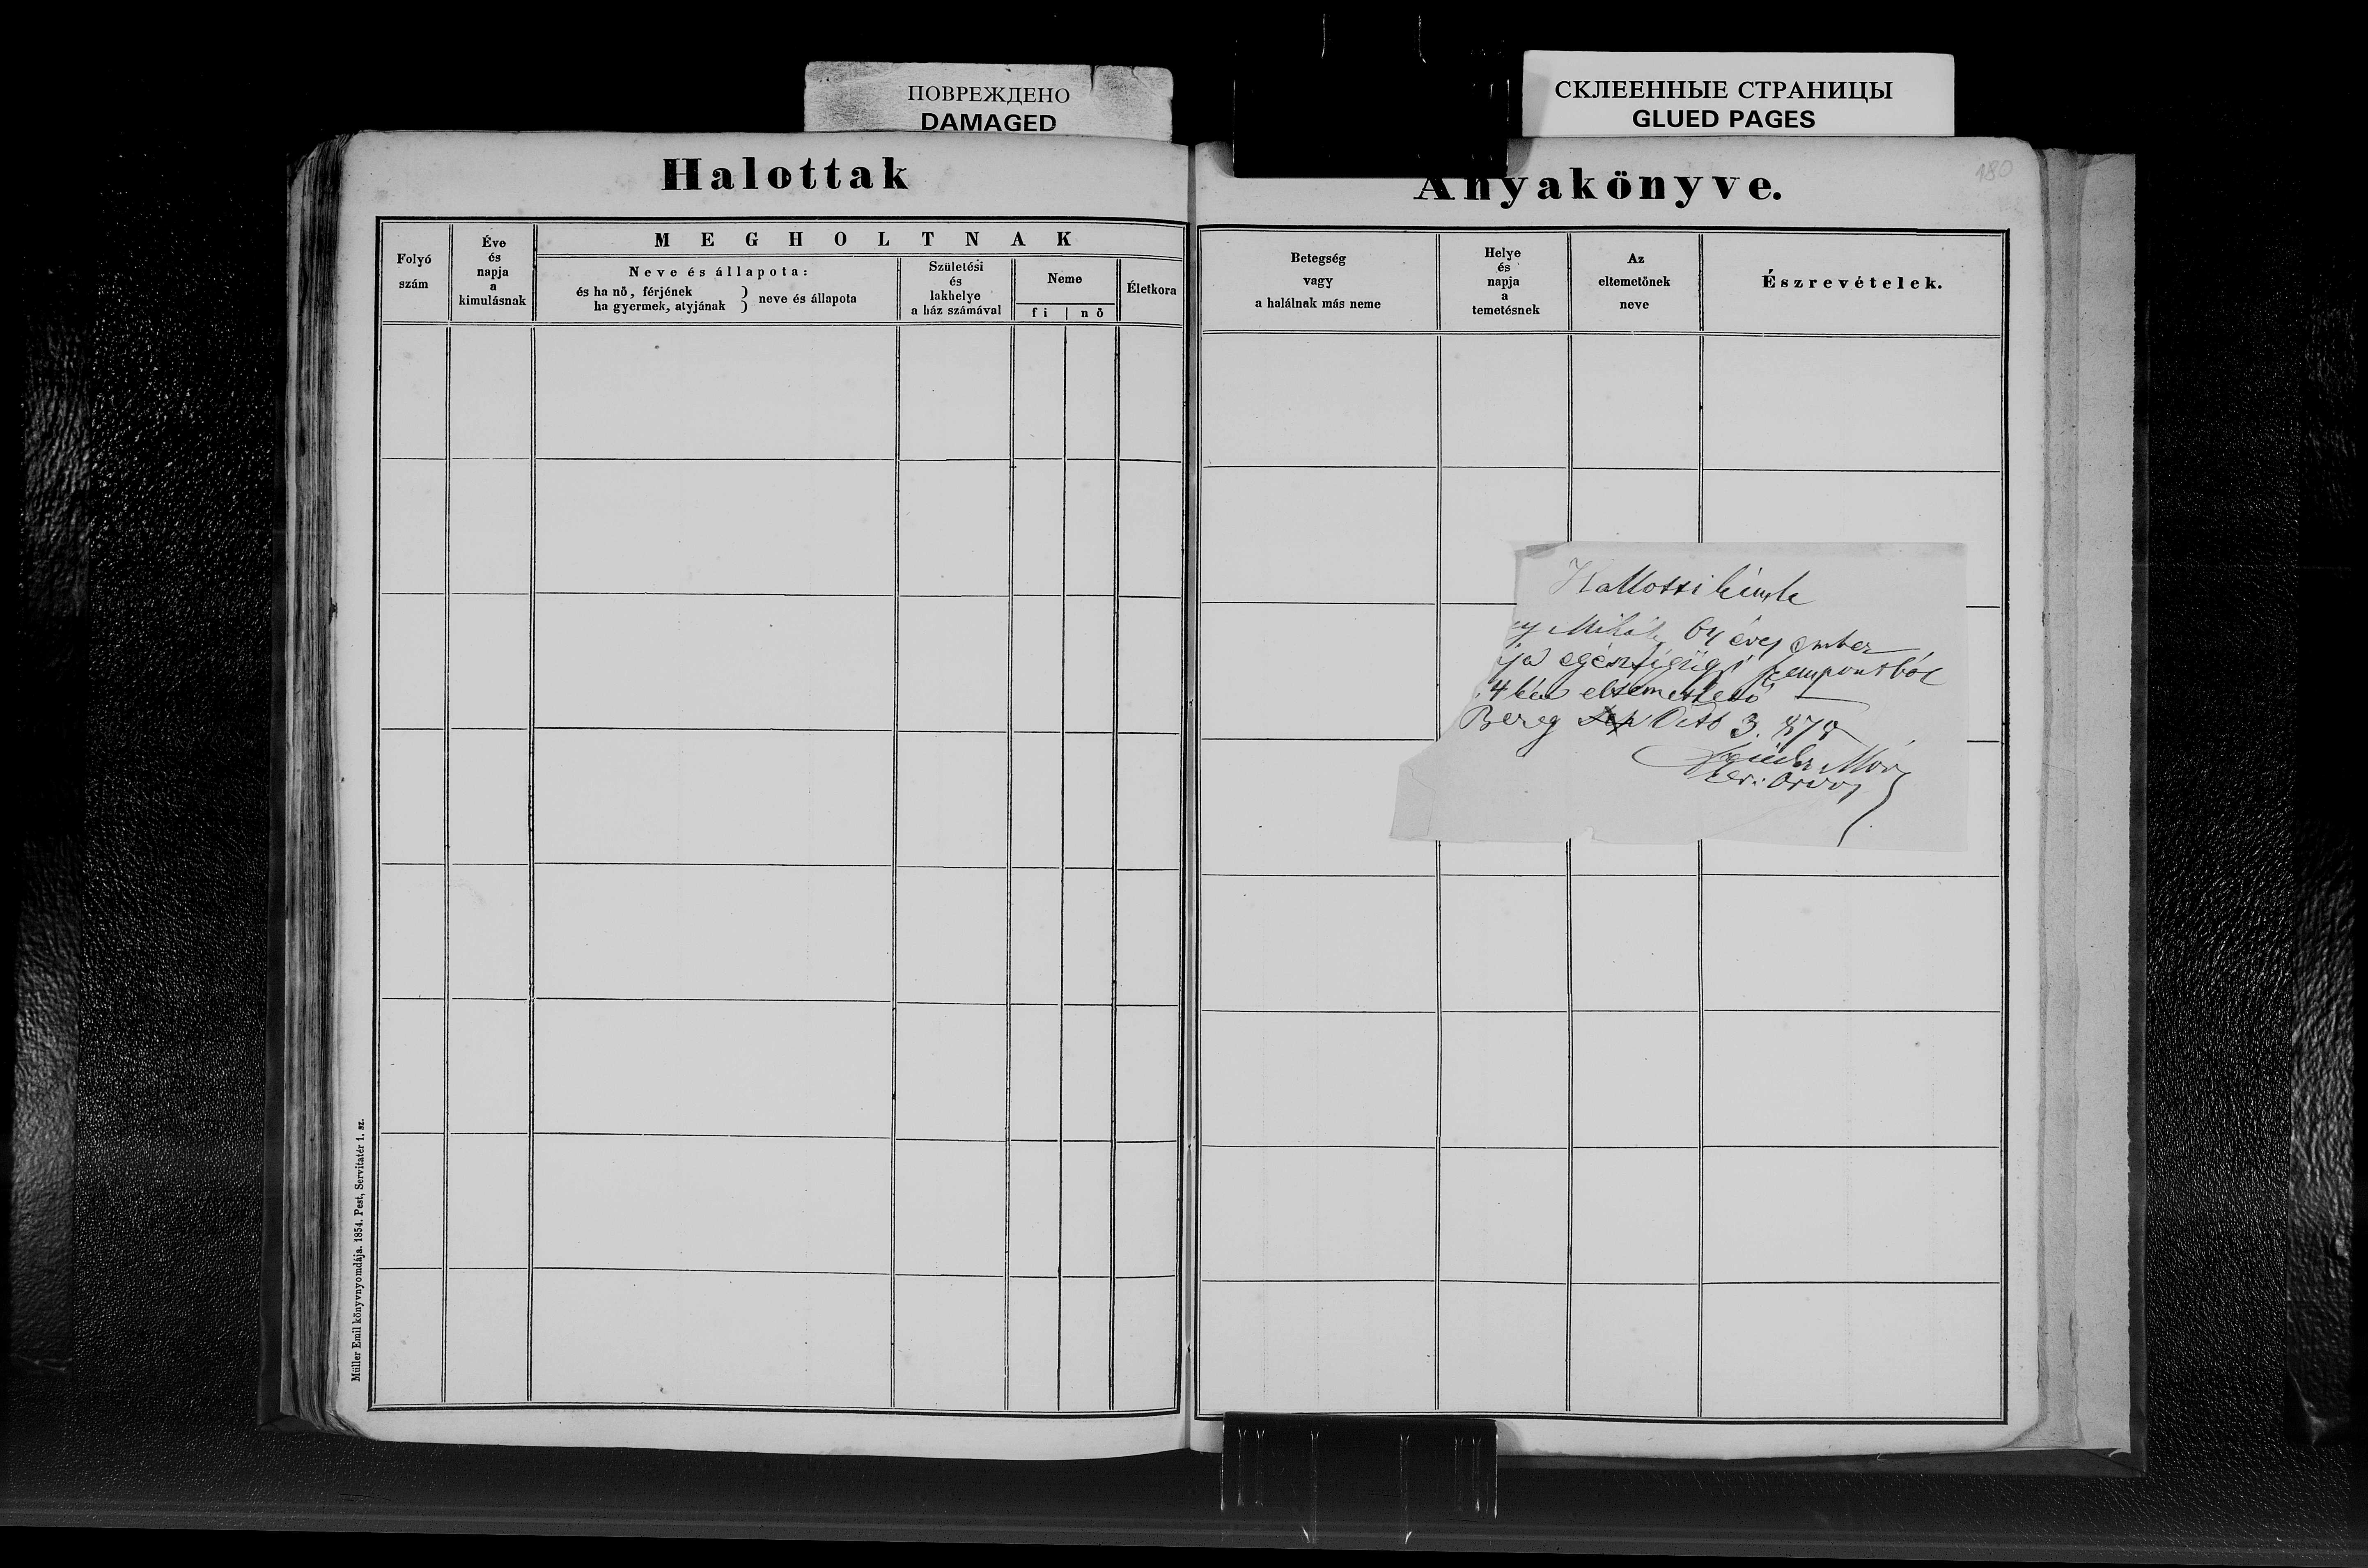 ПОВРЕЖДЕНО
DAMAGED
СКЛЕЕННЫЕ СТРАНИЦЫ
GLUED PAGES
Halottak
Anyakönyve.
180
Folyó
szám
Éve
és
napja
a
kimulásnak
MEGHOLTNAK
Neve és állapota:
és ha nő, férjének
ha gyermek, atyjának
} neve és állapota
Születési
és
lakhelye
a ház számával
Neme
fi | nő
Életkora
Betegség
vagy
a halálnak más neme
Helye
és
napja
a
temetésnek
Az
eltemetőnek
neve
Észrevételek.
Mihály 64 éves ember
egészségügyi szempontból
4 kén eltemethető
Bereg Octb 3. 878
Mór
Orvos
Müller Emil könyvnyomdája. 1854. Pest, Servitatér 1. sz.